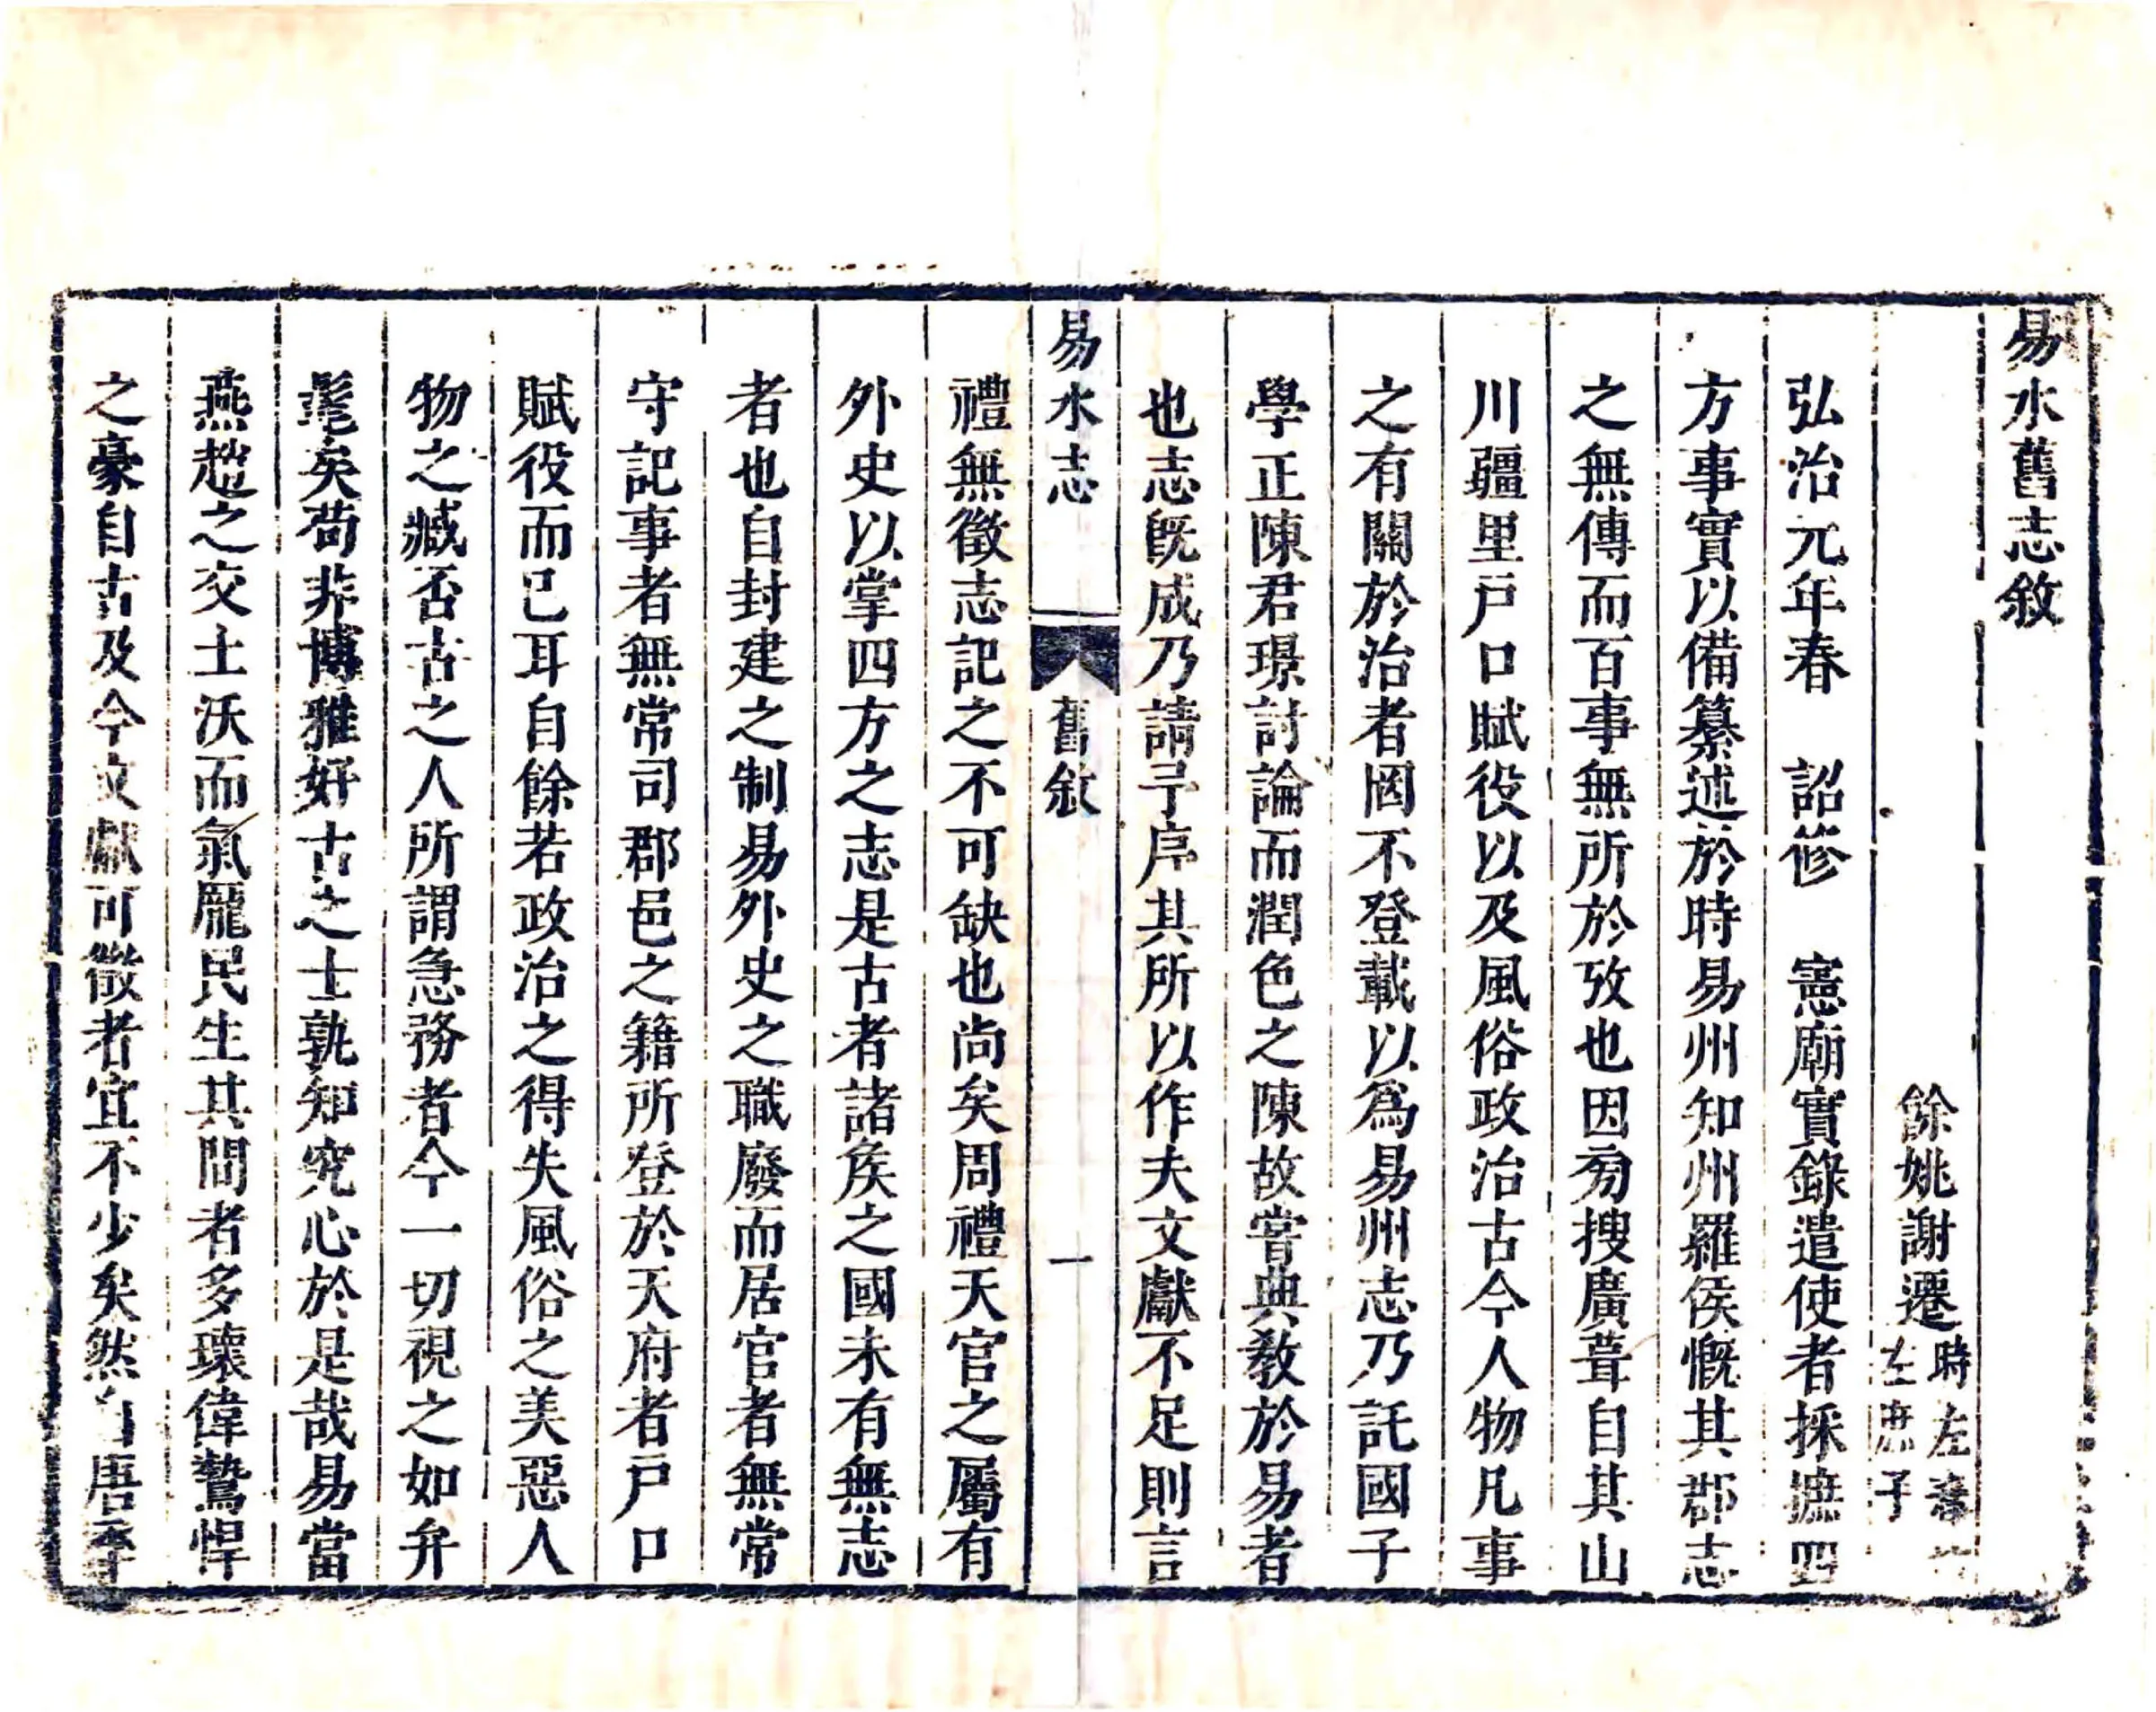 易水舊志敘
餘姚謝遷時左春
左庶子
弘治元年春　詔修　憲廟實錄遣使者採摭四
方事實以備纂述於時易州知州羅侯慨其郡志
之無傳而百事無所於攷也因旁搜廣葺自其山
川疆里戸口賦役以及風俗政治古今人物凡事
之有關於治者罔不登載以爲易州志乃託國子
學正陳君璟討論而潤色之陳故嘗典敎於易者
也志旣成乃請予序其所以作夫文獻不足則言
易水志　舊敘　一
禮無徵志記之不可缺也尚矣周禮天官之屬有
外史以掌四方之志是古者諸矦之國未有無志
者也自封建之制易外史之職廢而居官者無常
守記事者無常司郡邑之籍所登於天府者戸口
賦役而已耳自餘若政治之得失風俗之美惡人
物之臧否古之人所謂急務者今一切視之如弁
髦矣苟非博雅好古之士孰知究心於是哉易當
燕趙之交土沃而氣龐民生其間者多瓌偉鷙悍
之豪自古及今文獻可徵者宜不少矣然自唐季